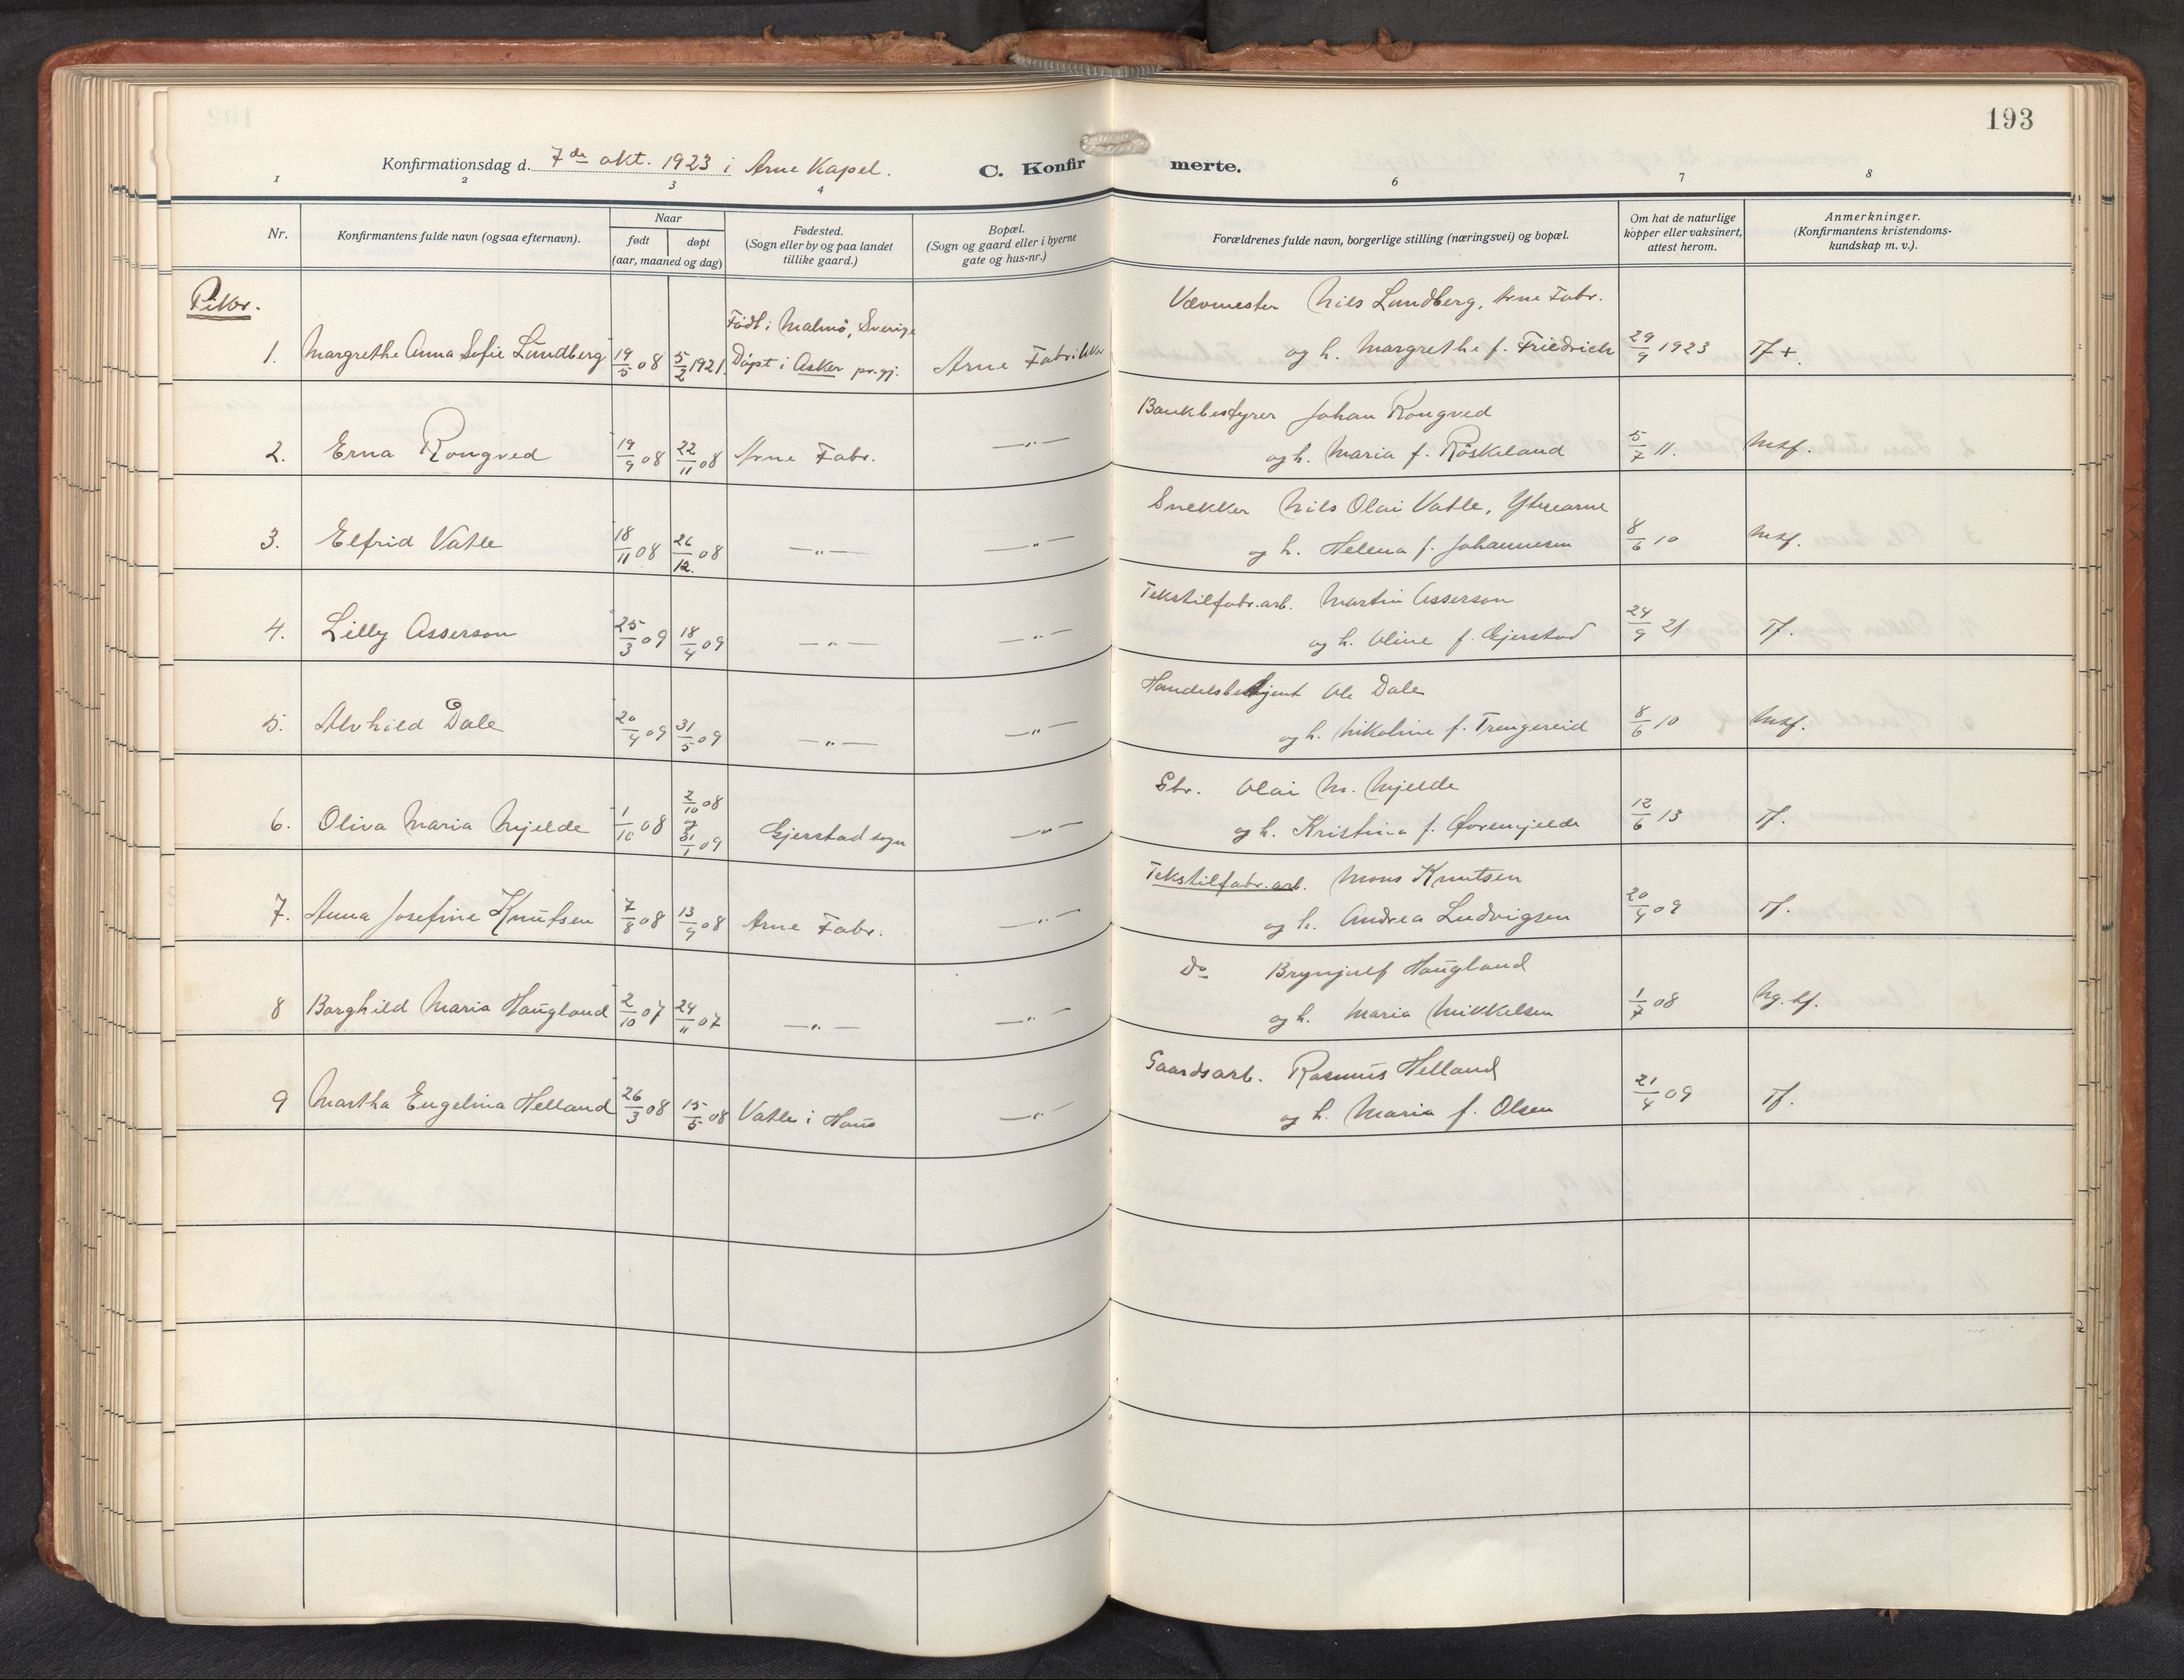 193
Konfirmationsdag d. 7de okt. 1923 i Arne Kapel.
C. Konfirmerte.
1 2 3 4 6 7 8
Nr.
Konfirmantens fulde navn (ogsaa efternavn).
Naar
født døpt
(aar, maaned og dag)
Fødested.
(Sogn eller by og paa landet
tillike gaard.)
Bopæl.
(Sogn og gaard eller i byerne
gate og hus-nr.)
Forældrenes fulde navn, borgerlige stilling (næringsvei) og bopæl.
Om hat de naturlige
kopper eller vaksinert,
attest herom.
Anmerkninger.
(Konfirmantens kristendoms-
kundskap m. v.).
Piker.
Født i Malmö, Sverige
Vævmester Nils Lundberg, Arne Fabr.
1. Margrethe Anna Sofie Lundberg 19/5 08 5/2 1921 Døpt i Asker pr.gj. Arne Fabrikker og h. Margrethe f. Friedrich 29/9 1923 Tf +.
Bankbestyrer Johan Rongved
2. Erna Rongved 19/9 08 22/11 08 Arne Fabr. —"— og h. Maria f. Röskeland 5/7 11. Mkf.
Snekker Nils Olai Vatle, Ytrearne
3. Elfrid Vatle 18/11 08 26/12. 08 —"— —"— og h. Helena f. Johannesen 8/6 10 Mkf.
Tekstilfabr.arb. Martin Asserson
4. Lilly Asserson 25/3 09 18/4 09 —"— —"— og h. Oline f. Gjerstad 24/9 21 Tf.
Handelsbetjent Ole Dale
5. Alvhild Dale 20/4 09 31/5 09 —"— —"— og h. Nikoline f. Trengereid 8/6 10 Mkf.
Gbr. Olai M. Mjelde
6. Oliva Maria Mjelde 1/10 08 2/10 08 og 31/1 09 Gjerstad sogn —"— og h. Kristina f. Øvremjelde 12/6 13 Tf.
Tekstilfabr.arb. Mons Knutsen
7. Anna Josefine Knutsen 7/8 08 13/9 08 Arne Fabr. —"— og h. Andrea Ludvigsen 20/4 09 Tf.
Do Brynjulf Haugland
8 Borghild Maria Haugland 2/10 07 24/11 07 —"— —"— og h. Maria Mikkelsen 1/7 08 Ng. tf.
Gaardsarb. Rasmus Helland
9 Martha Engelina Helland 26/3 08 15/5 08 Vatle i Haus —"— og h. Maria f. Olsen 21/4 09 Tf.